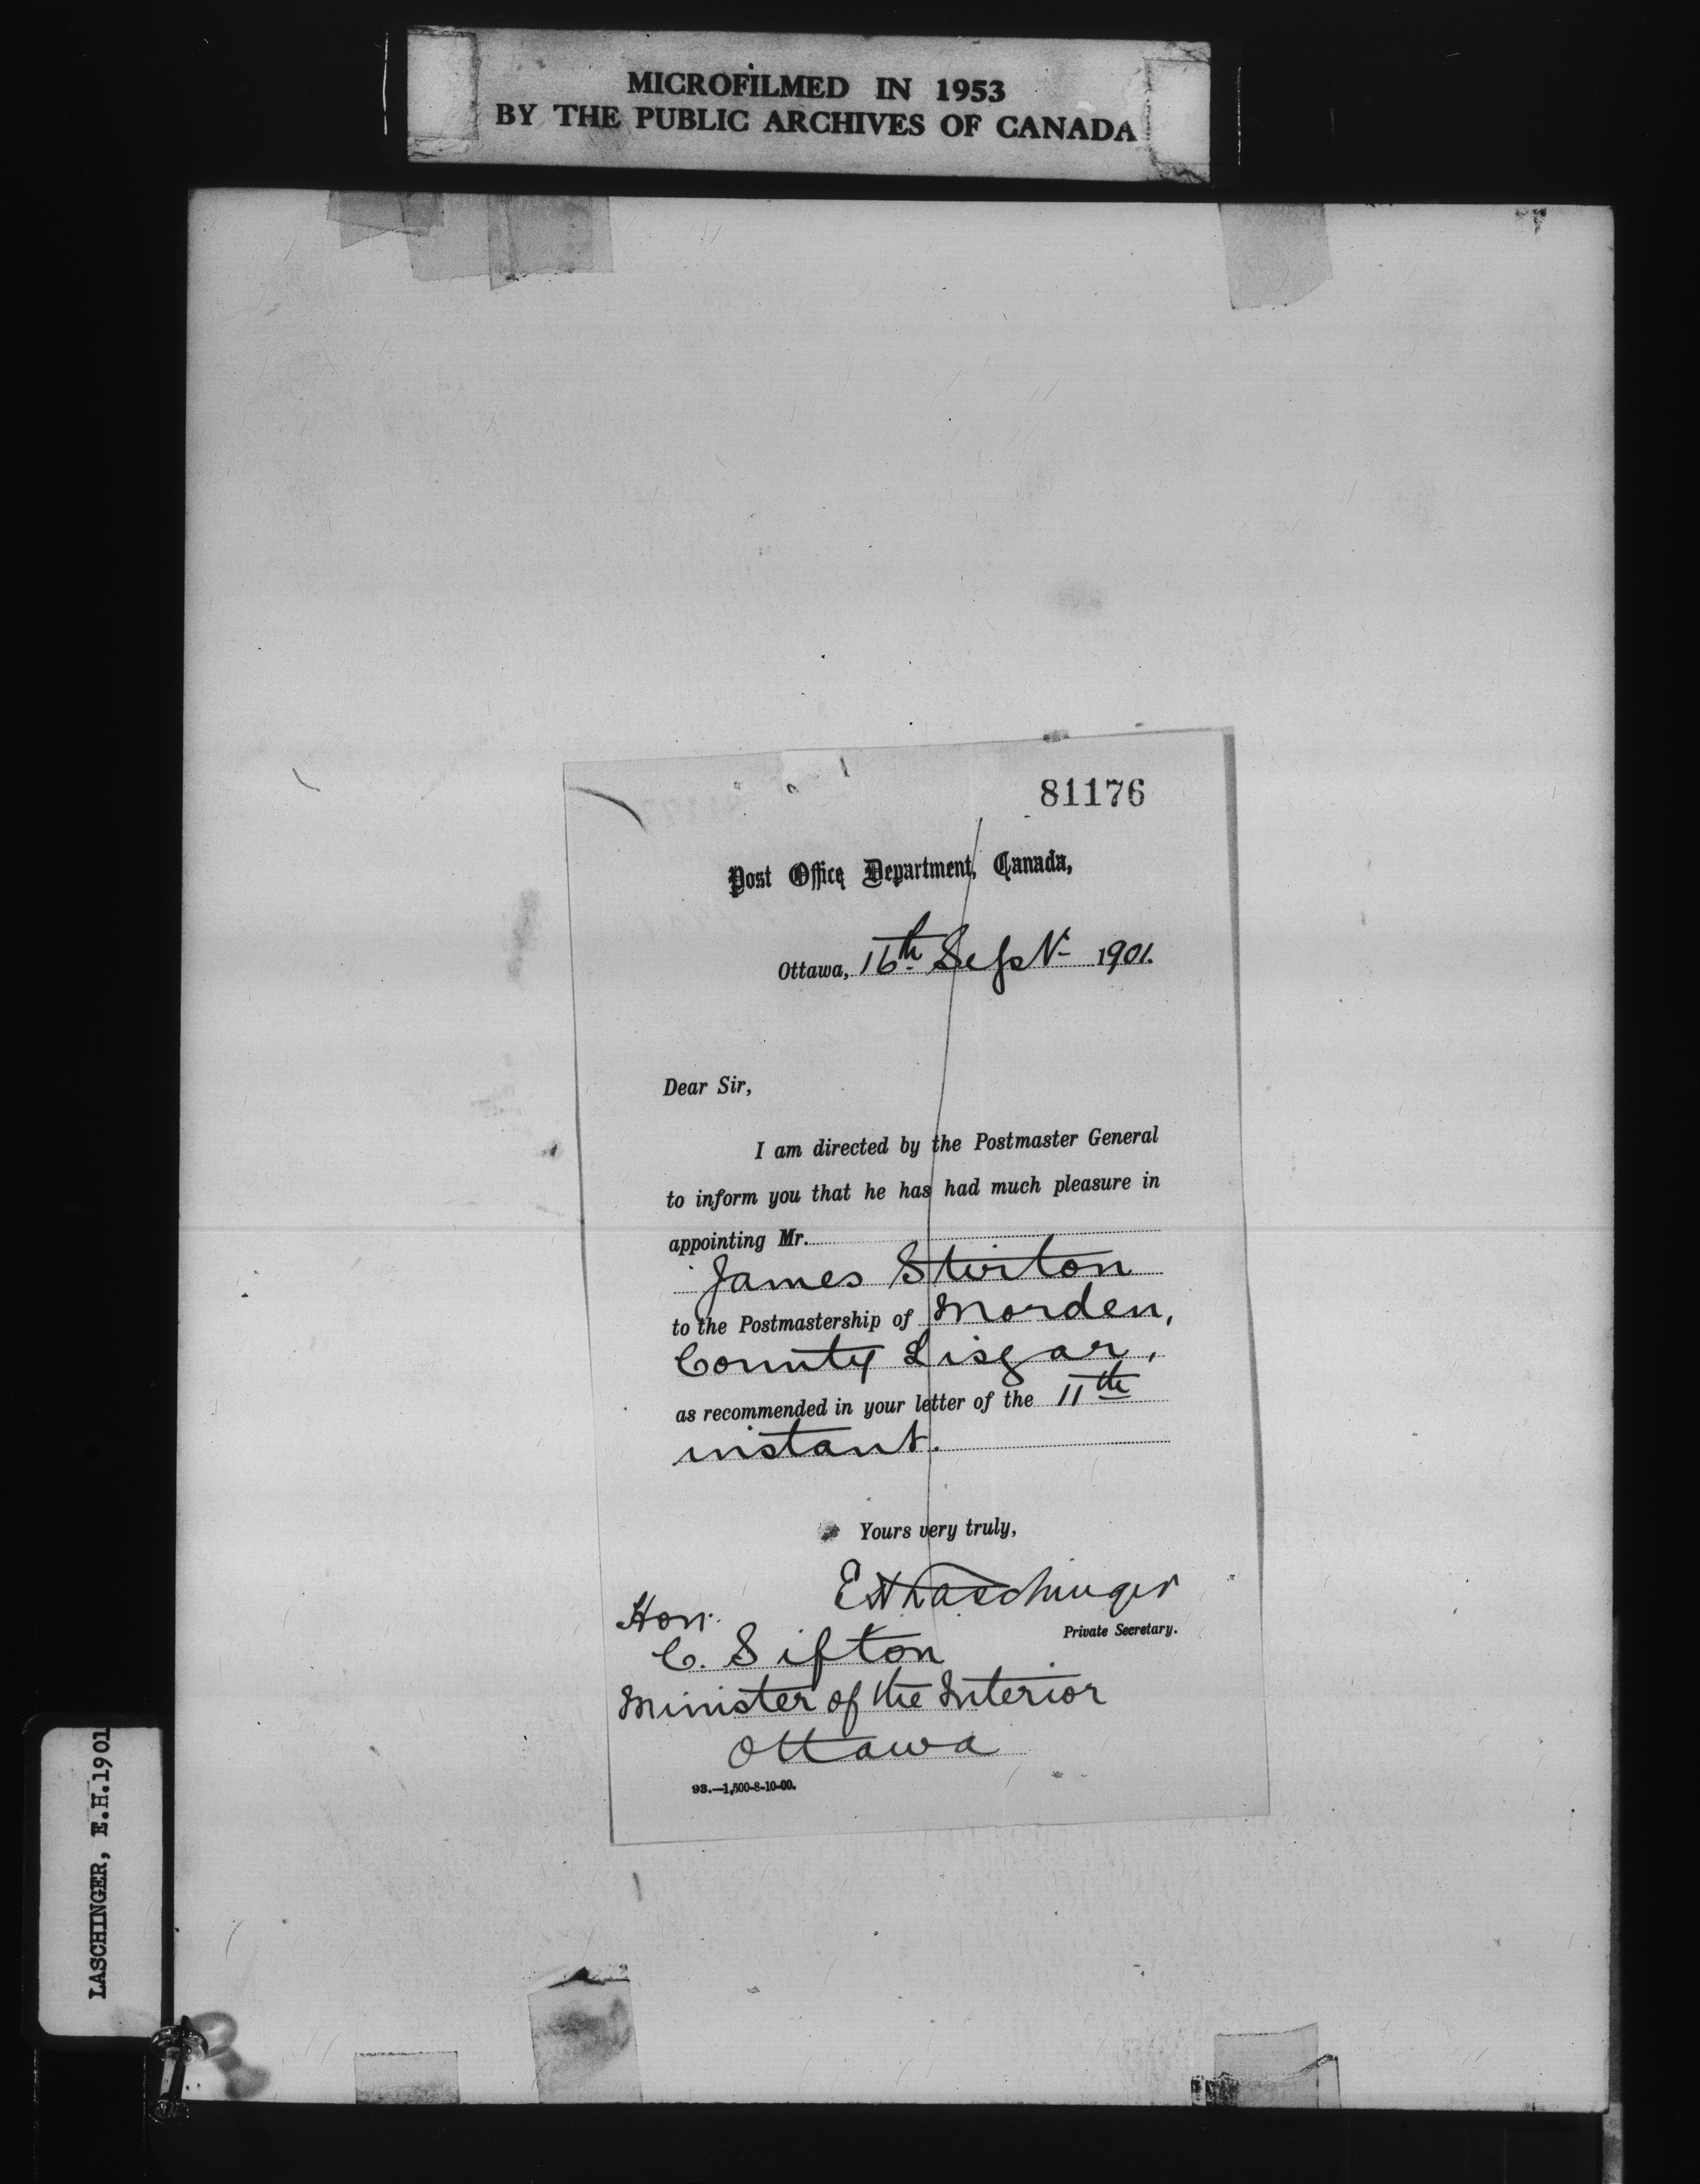 MICROFILMED IN 1953
BY THE PUBLIC ARCHIVES OF CANADA
81176
Post Office Department, Canada,
Ottawa, 16th Sept 1901.
Dear Sir,
I am directed by the Postmaster General
to inform you that he has had much pleasure in
appointing Mr.
James Stirton
to the Postmastership of Morden,
County Lisgar,
as recommended in your letter of the 11th
instant.
Yours very truly,
E H Laschinger
Private Secretary.
Hon.
C. Sifton
Minister of the Interior
Ottawa
93.—1,500-8-10-00.
LASCHINGER, E.H.1901